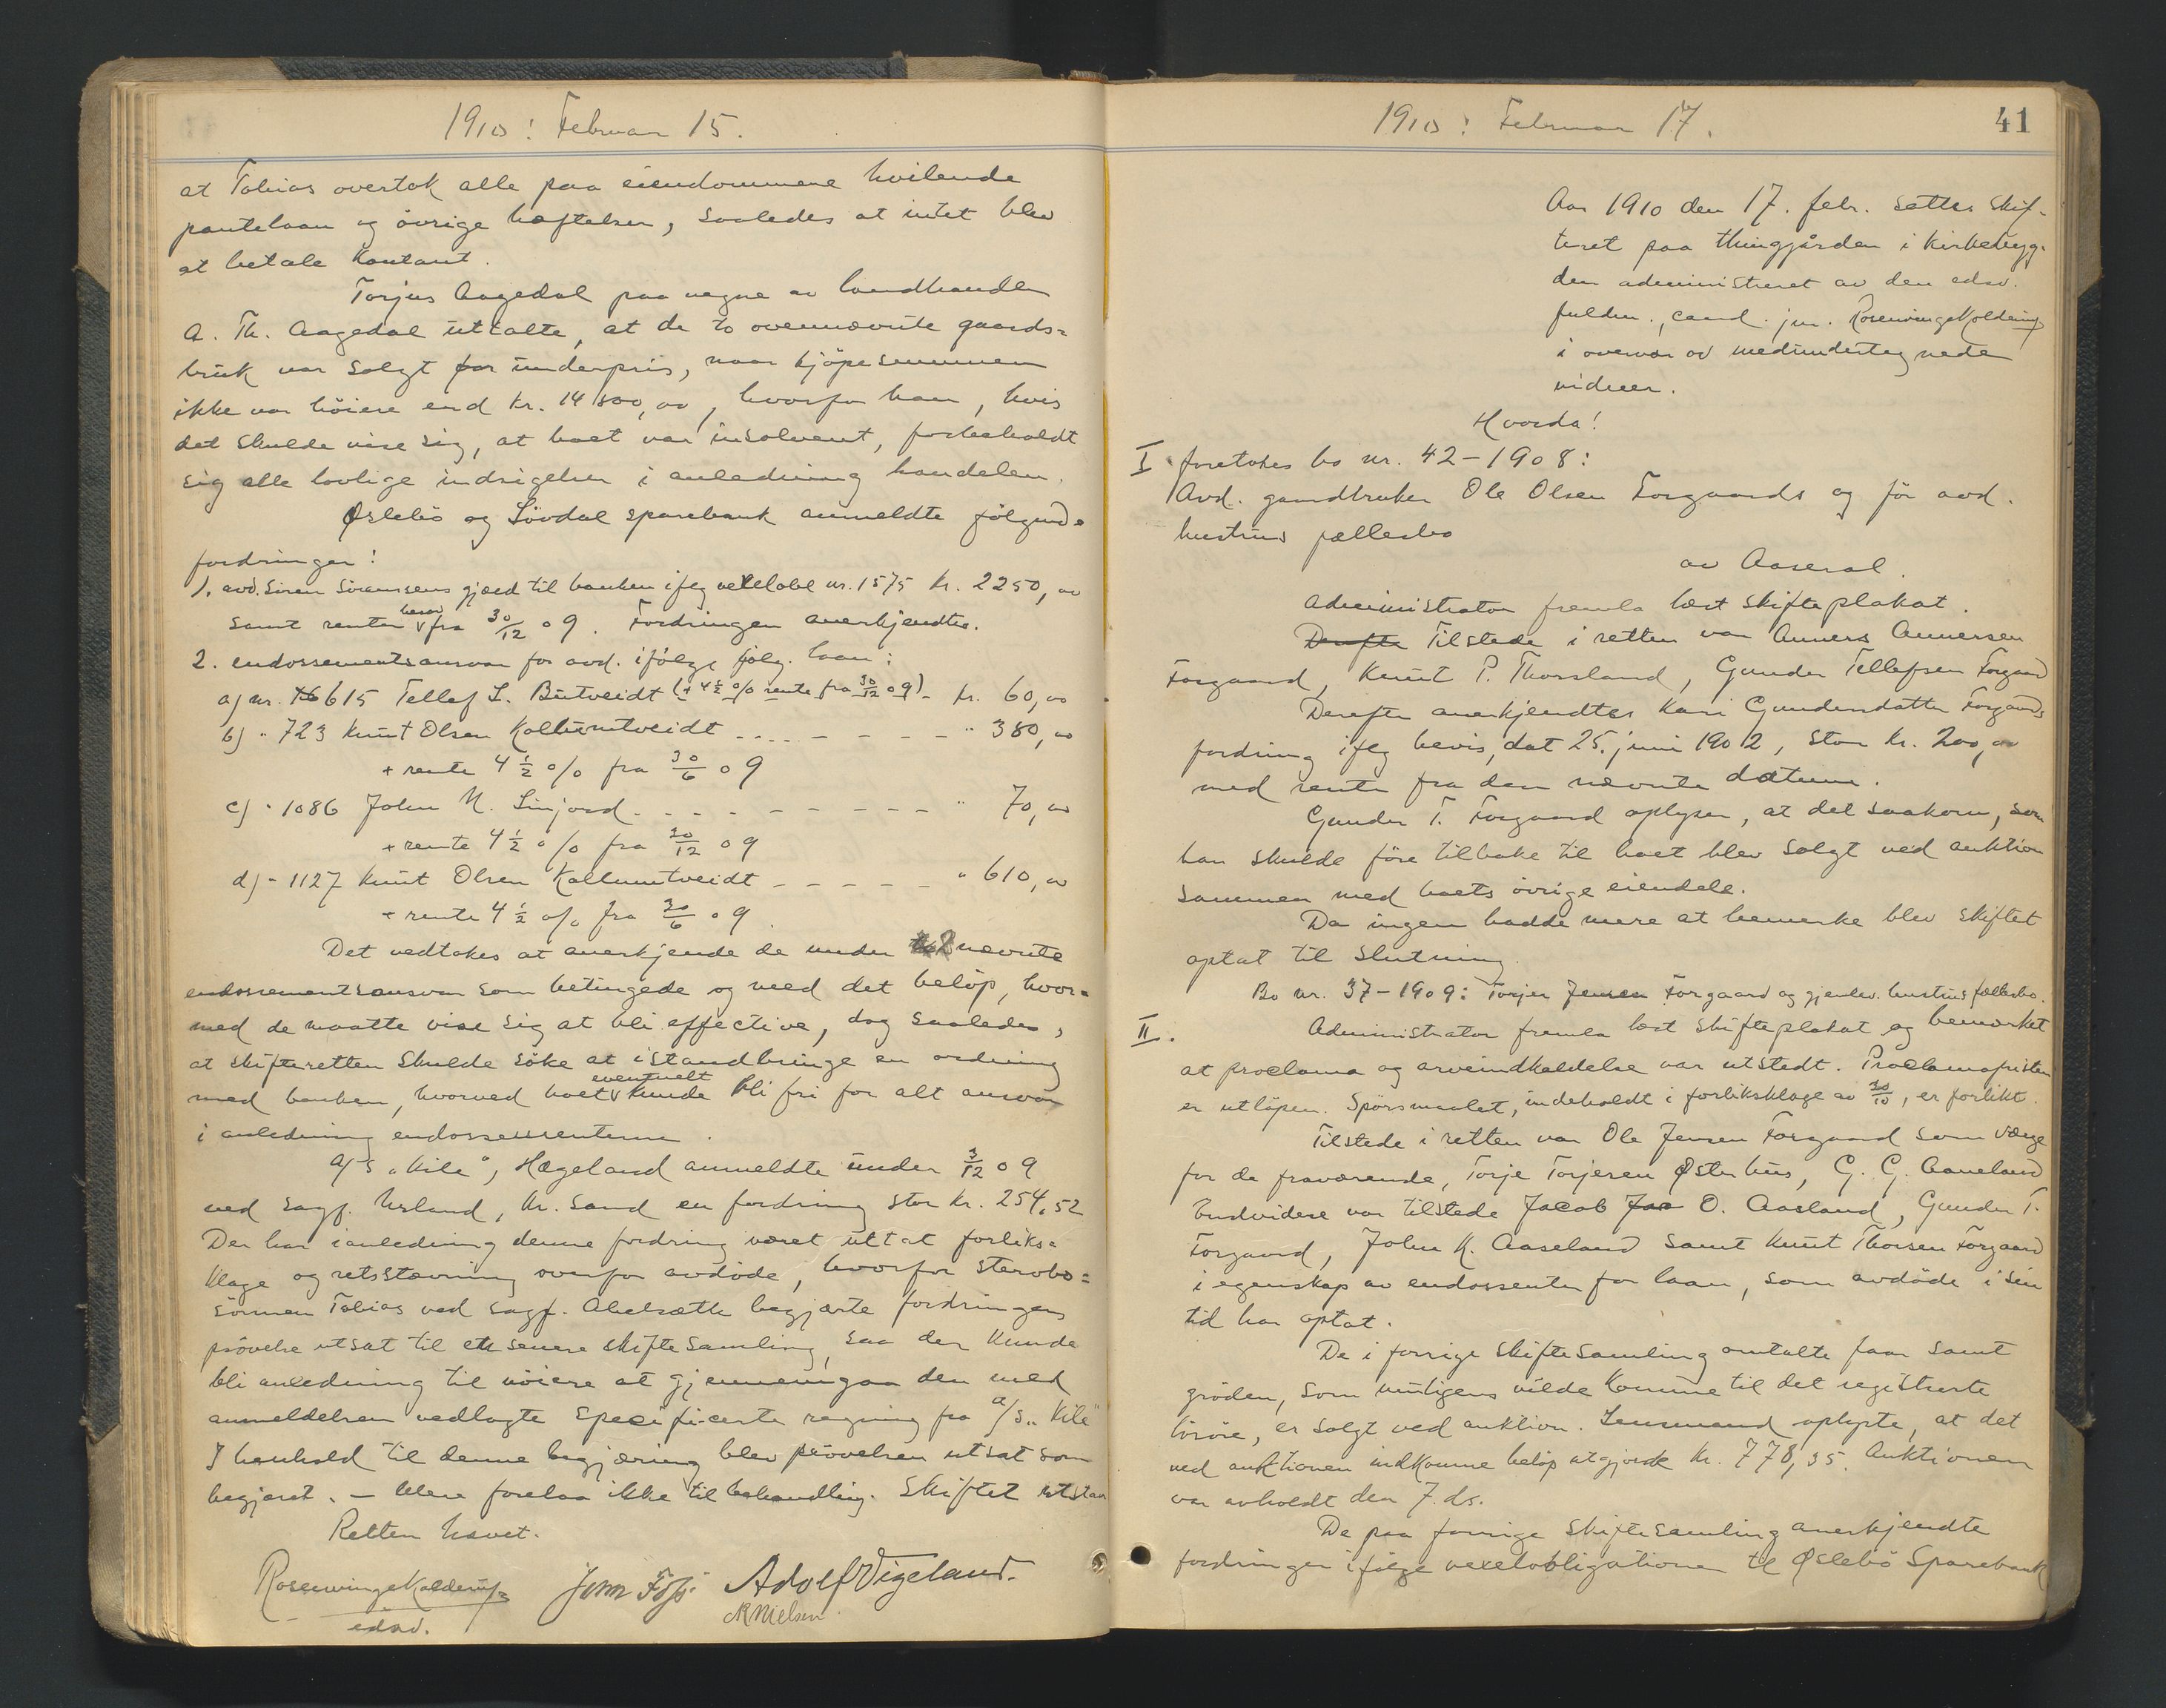 1910: Februar 15.
at Tobias overtok alle paa eiendommene hvilende
pantelaan og øvrige hæftelser, saaledes at intet blev
at betale kontant.
Torjus Aagedal paa vegne av landhandler
A. Th. Aagedal uttalte, at de to ovennævnte gaards=
bruk var solgt for underpris, naar kjöpesummen
ikke var höiere end kr. 14 500,00, hvorfor han, hvis
det skulde vise sig, at boet var insolvent, forbeholdt
sig alle lovlige indsigelser i anledning handelen.
Øslebö og Lövdal sparebank anmeldte fölgende
fordringer:
1. avd. Sören Sörensens gjæld til banken ifølg vexelobl nr. 1575 kr. 2250,00
samt renter herav fra 30/12 09. Fordringen anerkjendtes.
2. endossementsansvar for avd. ifölge fölg. laan:
a) nr. 615 Tellef L. Butveidt (+ 4½ % rente fra 30/12 09) - kr. 60,00
b) " 723 Knut Olsen Kallumtveidt - - - - - - - " 380,00
+ rente 4½ % fra 30/6 09
c) " 1086 John N. Linjord - - - - - - - - - " 70,00
+ rente 4½ % fra 30/12 09
d) " 1127 Knut Olsen Kallumtveidt - - - - - " 610,00
+ rente 4½ % fra 30/6 09.
Det vedtokes at anerkjende de under 2 nævnte
endossementsansvar som betingede og med det belöp, hvor=
med de maatte vise sig at bli effective, dog saaledes,
at skifteretten skulde söke at istandbringe en ordning
med banken, hvorved boet eventuelt kunde bli fri for alt ansvar
i anledning endossementerne.
A/S "Kile", Hægeland anmeldte under 3/12 09
ved sagf. Usland, Kr. Sand en fordring stor kr. 254,52
Der har i anledning denne fordring været uttat forliks=
klage og retsstævning overfor avdöde, hvorfor stervbo=
sönnen Tobias ved sagf. Abelsætte begjærte fordringens
prövelse utsat til en senere skiftesamling, saa der kunde
bli anledning til nöiere at gjennemgaa den med
anmeldelsen vedlagte specificerte regning fra A/S "Kile"
I henhold til denne begjæring blev prövelsen utsat som
begjært. – Mere forelaa ikke til behandling. Skiftet utstaar
Retten hævet.
Rosenvinge Kolderup
edsv.
John Foss. Adolf Vigeland.
NNielsen
1910: Februar 17.
41
Aar 1910 den 17. febr. sattes skif-
teret paa thinggården i Kirkebyg-
den administreret av den edsv.
fuldm., cand. jur. Rosenvinge Kolderup
i overvær av medundertegnede
vidner.
Hvorda!
I foretokes bo nr. 42 – 1908:
Avd. gaardbruker Ole Olsen Forgaards og för avd.
hustrus fællesbo
av Aaseral.
Administrator fremla læst skifteplakat.
Derefter Tilstede i retten var Anners Annersen
Forgaard, Knut P. Thorsland, Gunder Tellefsen Forgaard
Derefter anerkjendtes Kari Gundersdatter Forgaards
fordring ifølg bevis, dat 25. juni 1902, stor kr. 200,00
med rente fra den nævnte datum.
Gunder T. Forgaard oplyser, at det saakorn, som
han skulde före tilbake til boet blev solgt ved auktion
sammen med boets övrige eiendele.
Da ingen hadde mere at bemerke blev skiftet
optat til slutning.
Bo nr. 37 – 1909: Torjer Jensen Forgaard og gjenlev. hustrus fællesbo.
II.
Administrator fremla læst skifteplakat og bemærket
at proclama og arveindkaldelse var utstedt. Proclamafristen
er utlöpen. Spörsmaalet, indeholdt i forliksklage av 30/10, er forlikt.
Tilstede i retten var Ole Jensen Forgaard som værge
for de fraværende, Torje Torjersen Østerhus, G. G. Aaneland
Endvidere var tilstede Jacob Jaa O. Aasland, Gunder T.
Forgaard, John K. Aaseland samt Knut Thorsen Forgaard
i egenskap av endossenter for laan, som avdöde i sin
tid har optat.
De i forrige skiftesamling omtalte faar samt
gröden, som muligens vilde komme til det registrerte
lösöre, er solgt ved auktion. Lensmand oplyste, at det
ved auktionen indkomne belöp utgjorde kr. 778,35. Auktionen
var avholdt den 7. ds.
De paa forrige skiftesamling anerkjendte
fordringer ifölge vexelobligationer til Øslebö Sparebank